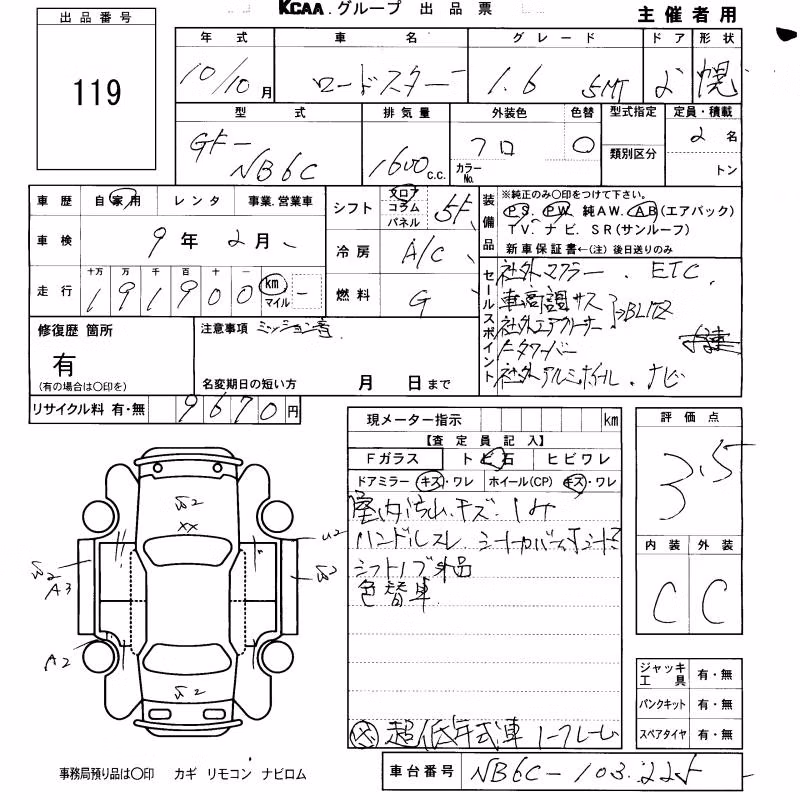 KCAA.グループ 出品票
主催者用
出品番号
119
年式 車名 グレード ドア 形状
10/10月 ロードスター 1.6 5MT 2 幌
型式 排気量 外装色 色替 型式指定 定員・積載
GF-NB6C 1600c.c. クロ カラーNo. ○ 類別区分 2名 トン
車歴 自家用 レンタ 事業.営業車
車検 9年2月
走行 十万 万 千 百 十 一
191900 km マイル
シフト フロア コラム パネル 5F
冷房 A/C
燃料 G
装備品 ※純正のみ○印をつけて下さい。
PS. PW. 純AW. AB(エアバック)
TV. ナビ. SR(サンルーフ)
新車保証書←(注)後日送りのみ
セールスポイント
社外マフラー. ETC
車高調サス
社外エアクリーナー
タワーバー
社外アルミホイル. ナビ
修復歴 箇所
有
(有の場合は○印を)
注意事項 ミッション
名変期日の短い方 月 日まで
リサイクル料 有・無 9670円
現メーター指示 km
【査定員記入】
Fガラス トビ石 ヒビワレ
ドアミラー キズ・ワレ ホイール(CP) キズ・ワレ
室内汚れ.キズ.
ハンドルスレ シートカバー
シフトノブ外品
色替車
超低年式車 ノークレーム
評価点
3.5
内装 外装
C C
W2
XX
W2
A3
A2
W2
ジャッキ工具 有・無
パンクキット 有・無
スペアタイヤ 有・無
事務局預り品は○印 カギ リモコン ナビロム
車台番号 NB6C-103225